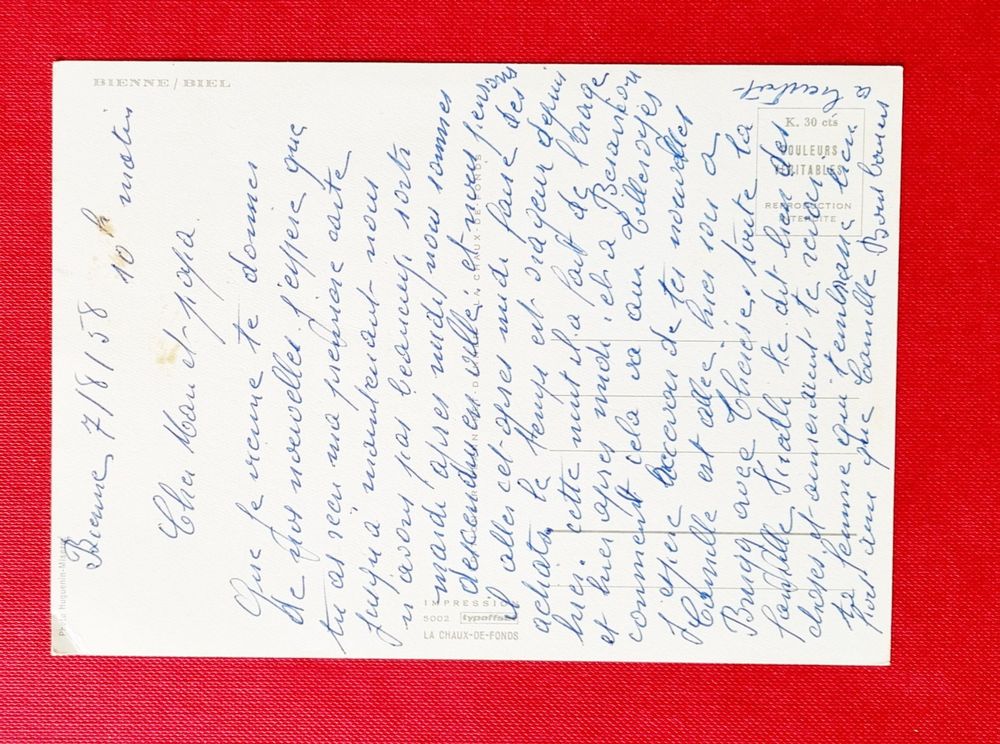 BIENNE/BIEL
Photo Huguenin-
IMPRESSION
5002 typoffset
LA CHAUX-DE-FONDS
K. 30 cts
COULEURS
VÉRITABLES
REPRODUCTION
INTERDITE
Bienne 7/8/58 10h matin
Cher Man et papa
Que je vienne te donner
de nos nouvelles j'espère que
tu as reçu ma première carte
jusqu'à maintenant nous
n'avons pas beaucoup sorti
mardi après midi nous sommes
descendu en ville, et nous pensons
y aller cet après midi faire des
achats, le temps est orageux depuis
hier cette nuit il a fait de l'orage
et hier après midi, et à Besançon
comment cela va aux Tilleroyes
J'espère recevoir de tes nouvelles
Camille est allée hier soir a
Brugg avec Thérèse, toute la
famille te dit bien des
choses et aimerait te revoir
ta femme qui t'embrasse bien
fort ainsi que Camille Bons baisers